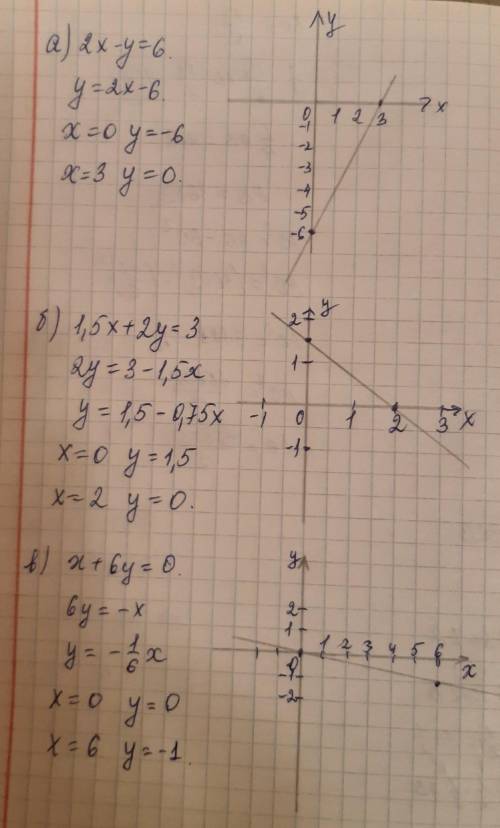 а) 2x-y=6.
y=2x-6.
x=0 y=-6
x=3 y=0.
y
0 1 2 3 x
-1
-2
-3
-4
-5
-6
б) 1,5x+2y=3.
2y=3-1,5x
y=1,5-0,75x
x=0 y=1,5
x=2 y=0.
y
2
1
-1 0 1 2 3 x
-1
в) x+6y=0.
6y=-x
y=-1/6x
x=0 y=0
x=6 y=-1.
y
2
1
0 1 2 3 4 5 6 x
-1
-2